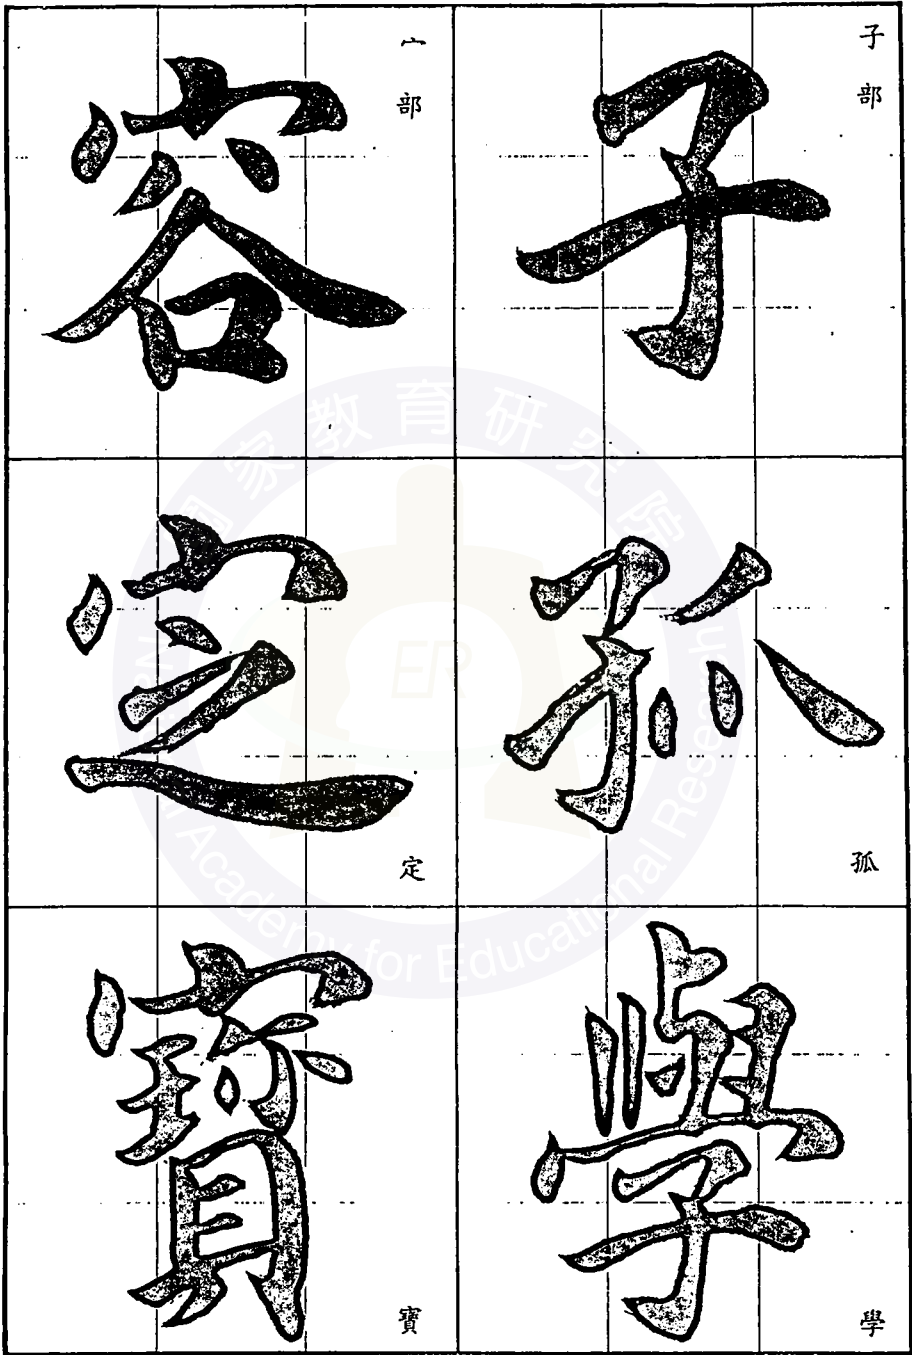 子部
子
孤
孤
學
學
宀部
容
定
定
寶
寶
國家教育研究院
National Academy for Educational Research
ER